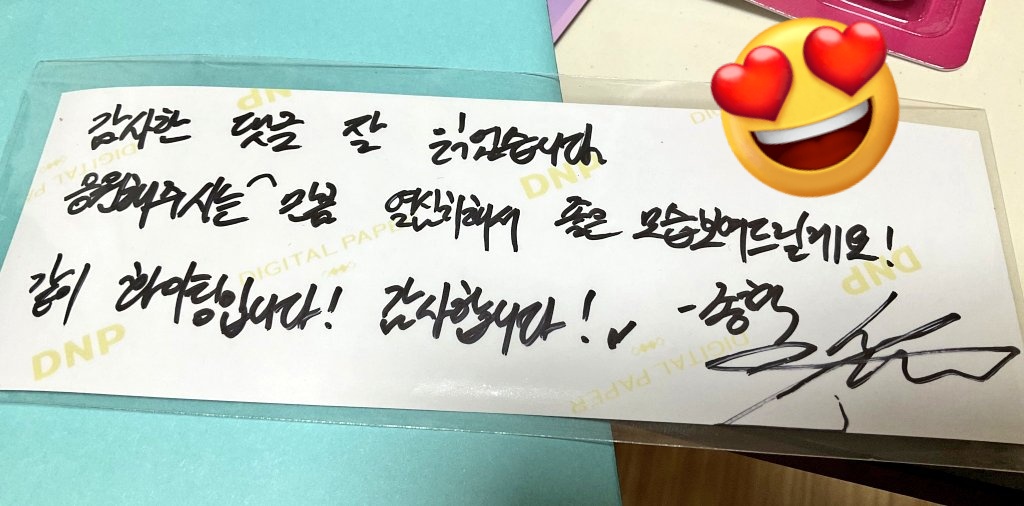 감사한 댓글 잘 읽었습니다.
응원해주시는 만큼 열심히해서 좋은 모습보여드릴게요!
같이 화이팅입니다! 감사합니다!
DNP
DIGITAL PAPER
DNP
DIGITAL PAPER
DNP
DNP
DIGITAL PAPER